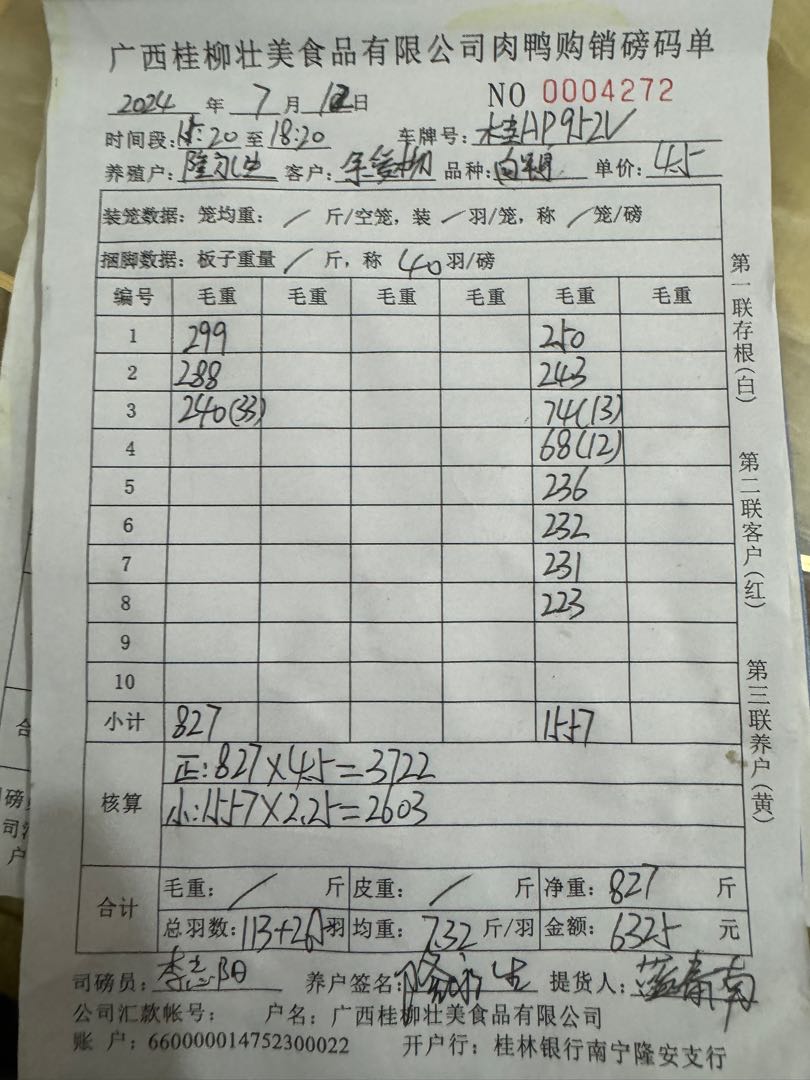 广西桂柳壮美食品有限公司肉鸭购销磅码单
2024 年 7 月 12 日 NO 0004272
时间段: 15:20 至 18:20 车牌号: 桂AP952V
养殖户: 隆永生 客户: 品种: 单价: 4.5
装笼数据: 笼均重: / 斤/空笼, 装 / 羽/笼, 称 / 笼/磅
捆脚数据: 板子重量 / 斤, 称 40 羽/磅
编号 毛重 毛重 毛重 毛重 毛重 毛重
1 299 250
2 288 243
3 240(33) 74(13)
4 68(12)
5 236
6 232
7 231
8 223
9
10
小计 827 1557
核算
正:827×4.5=3722
小:1557×2.25=2603
合计
毛重: / 斤 皮重: / 斤 净重: 827 斤
总羽数: 113+265羽 均重: 7.32 斤/羽 金额: 6325 元
司磅员: 李志阳 养户签名: 隆永生 提货人: 蓝春南
公司汇款帐号: 户名: 广西桂柳壮美食品有限公司
账 户: 660000014752300022 开户行: 桂林银行南宁隆安支行
第一联存根(白)
第二联客户(红)
第三联养户(黄)